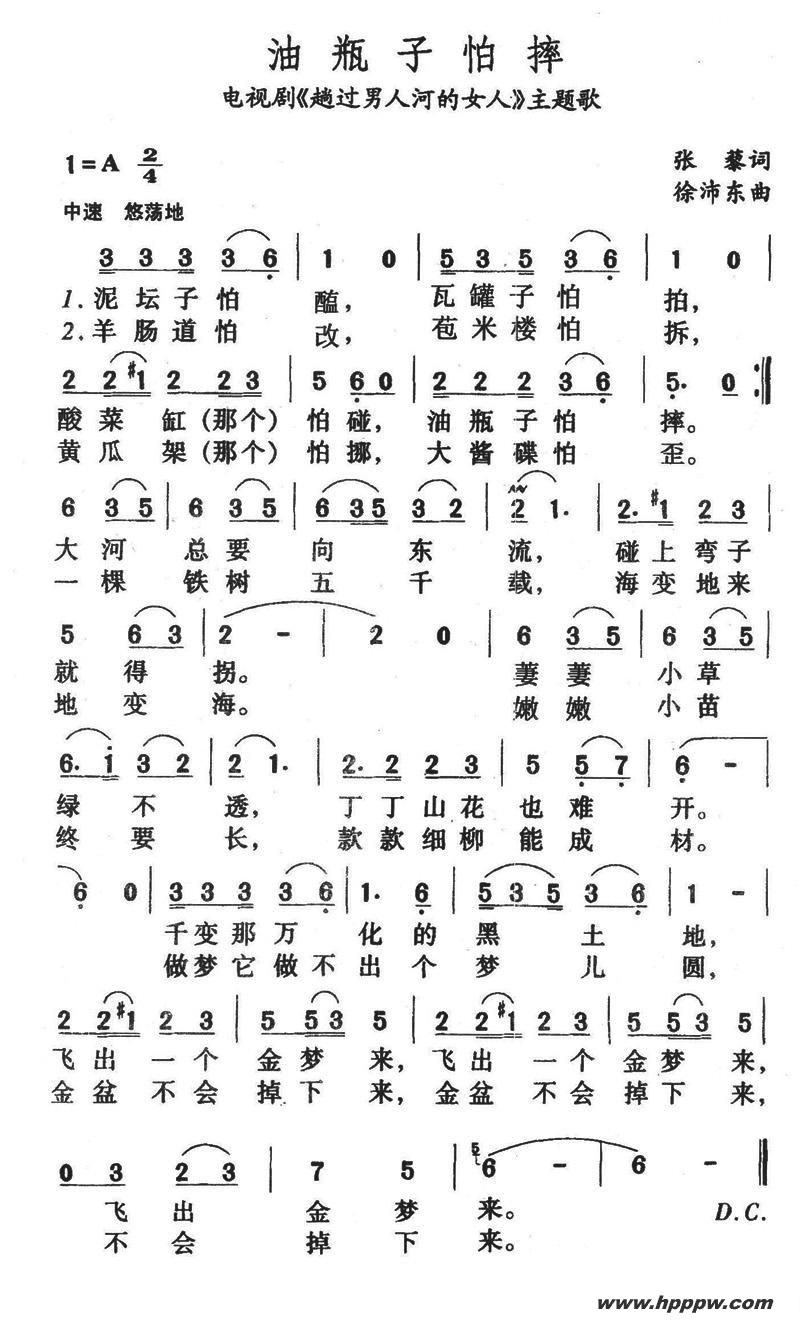 油瓶子怕摔
电视剧《趟过男人河的女人》主题歌
1=A 2/4
张藜词
徐沛东曲
中速 悠荡地
3 3 3 3 6 | 1 0 | 5 3 5 3 6 | 1 0 |
1.泥坛子怕 醢, 瓦罐子怕 拍,
2.羊肠道怕 改, 苞米楼怕 拆,
2 2 #1 2 2 3 | 5 6 0 | 2 2 2 3 6 | 5. 0 :‖
酸菜 缸(那个)怕碰, 油瓶子怕 摔。
黄瓜 架(那个)怕挪, 大酱碟怕 歪。
6 3 5 | 6 3 5 | 6 3 5 3 2 | 2 1. | 2. #1 2 3 |
大河 总要 向东 流, 碰上弯子
一棵 铁树 五千 载, 海变地来
5 6 3 | 2 - | 2 0 | 6 3 5 | 6 3 5 |
就得 拐。 萋萋 小草
地变 海。 嫩嫩 小苗
6. 1 3 2 | 2 1. | 2. 2 2 3 | 5 5 7 | 6 - |
绿不 透, 丁丁山花 也难 开。
终要 长, 款款细柳 能成 材。
6 0 | 3 3 3 3 6 | 1. 6 | 5 3 5 3 6 | 1 - |
千变那万 化的 黑土 地,
做梦它做 不出 个梦儿 圆,
2 2 #1 2 3 | 5 5 3 5 | 2 2 #1 2 3 | 5 5 3 5 |
飞出一个 金梦来, 飞出一个 金梦来,
金盆不会 掉下来, 金盆不会 掉下来,
0 3 2 3 | 7 5 | 5 6 - | 6 - ‖
飞出 金梦 来。 D.C.
不会 掉下 来。
www.hpppw.com